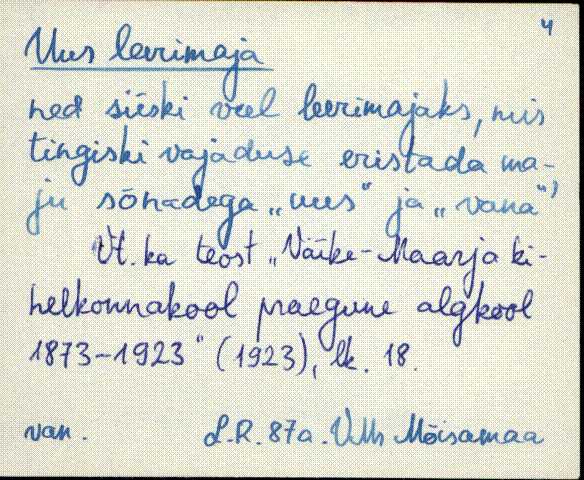 4
Uus leerimaja
ned siiski veel leerimajaks, mis
tingiski vajaduse eristada ma-
ju sõnadega „uus“ ja „vana“,
Vt. ka teost „Väike-Maarja ki-
helkonnakool praegune algkool
1873-1923“ (1923), lk. 18.
van. L.R. 87a. Mõisamaa